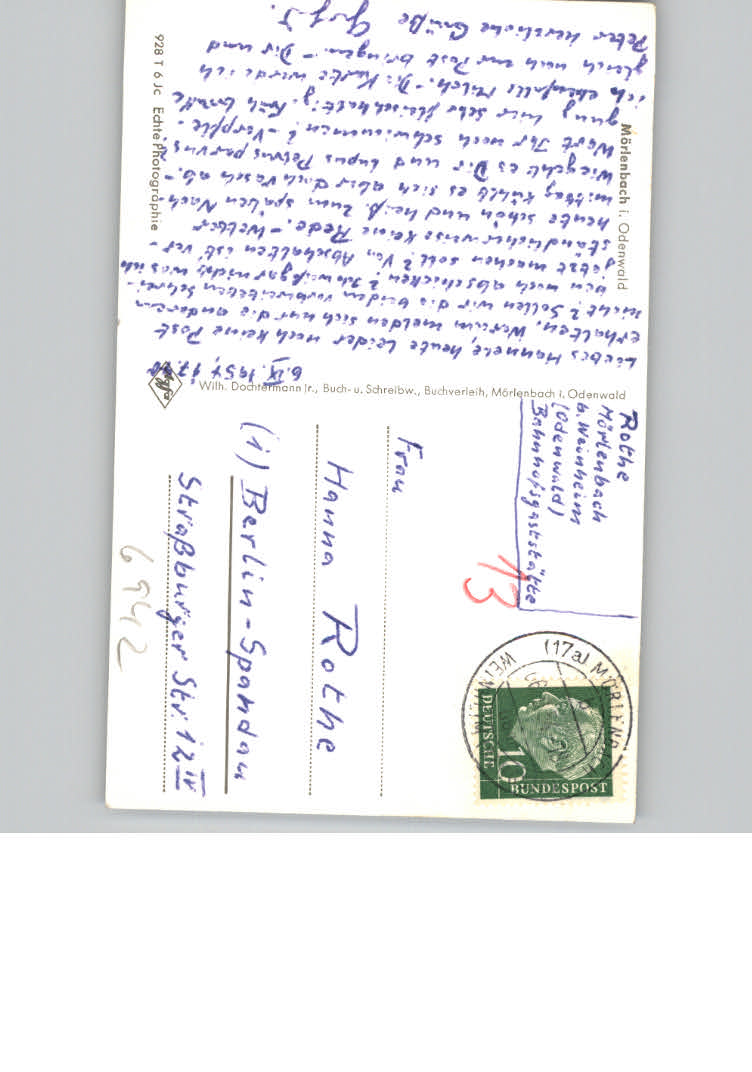 Mörlenbach i. Odenwald
6.IX.
Liebes Hannele, heute leider noch keine Post
erhalten. Warum melden sich nur die anderen
nicht? Sollen wir die beiden vorbereiteten Schrei-
ben noch abschicken? Ich weiß gar nicht was ich
jetzt machen soll? Von Abschalten ist ver-
ständlicherweise keine Rede. – Wetter
heute schön und heiß. Zum späten Nach-
mittag kühlt es sich aber doch rasch ab –
Wie geht es Dir und Lupus Petrus parvus?
Wart Ihr noch schwimmen? – Verpfle-
gung hier sehr fleischhaltig. Früh trinke
ich ebenfalls Milch. – Die Karte werde ich
gleich noch zur Post bringen. – Dir und
Peter herzliche Grüße
928 T 6 Jc Echte Photographie
Agfa
Wilh. Dochtermann jr., Buch- u. Schreibw., Buchverleih, Mörlenbach i. Odenwald
Rothe
Mörlenbach
b. Weinheim
(Odenwald)
Bahnhofsgaststätte
13
(17a) MÖRLENBACH
WEINHEIM
DEUTSCHE
10
BUNDESPOST
Frau
Hanna Rothe
(1) Berlin-Spandau
Straßburger Str. 12 IV
6942